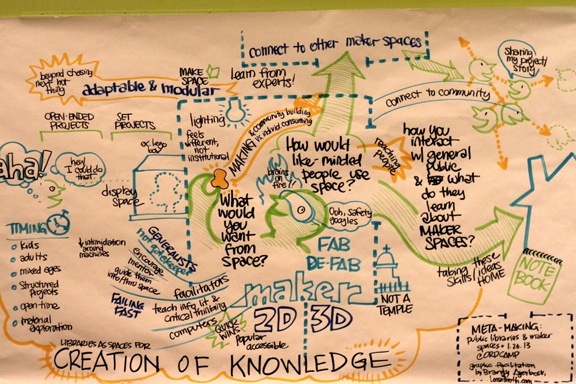 connect to other maker spaces
beyond chasing
next hot
thing
adaptable & modular
MAKE
SPACE
learn from
experts!
sharing
my project/
story
connect to community
OPEN-ENDED
PROJECTS
SET
PROJECTS
or lego
lighting
feels
different,
not
institutional
MAKING & community building
How would
like-minded
people use
space?
reaching
people
how you
interact
w/ general
public
& what
do they
learn
about
MAKER
SPACES?
aha!
hey!
I could do
that.
display
space
brains
on
fire!
What
would
you
want
from
space?
Ooh, safety
goggles
FAB
DE-FAB
TIMING
kids
adults
mixed ages
structured
projects
open-time
material
exploration
intimidation
around
machines
GENERALISTS
not gatekeepers
encourage
mentors
guide them
into/thru space
FAILING
FAST
facilitators
teach info, lit &
critical thinking
computers
maker
2D 3D
popular
accessible
NOT A
TEMPLE
taking these
skills/ideas
HOME
NOTE
BOOK
LIBRARIES AS SPACES FOR
CREATION OF KNOWLEDGE
META-MAKING:
public libraries & maker
spaces • 1.26.13
CORDCAMP
graphic facilitation
by Brandy Agerbeck
loosetooth.com